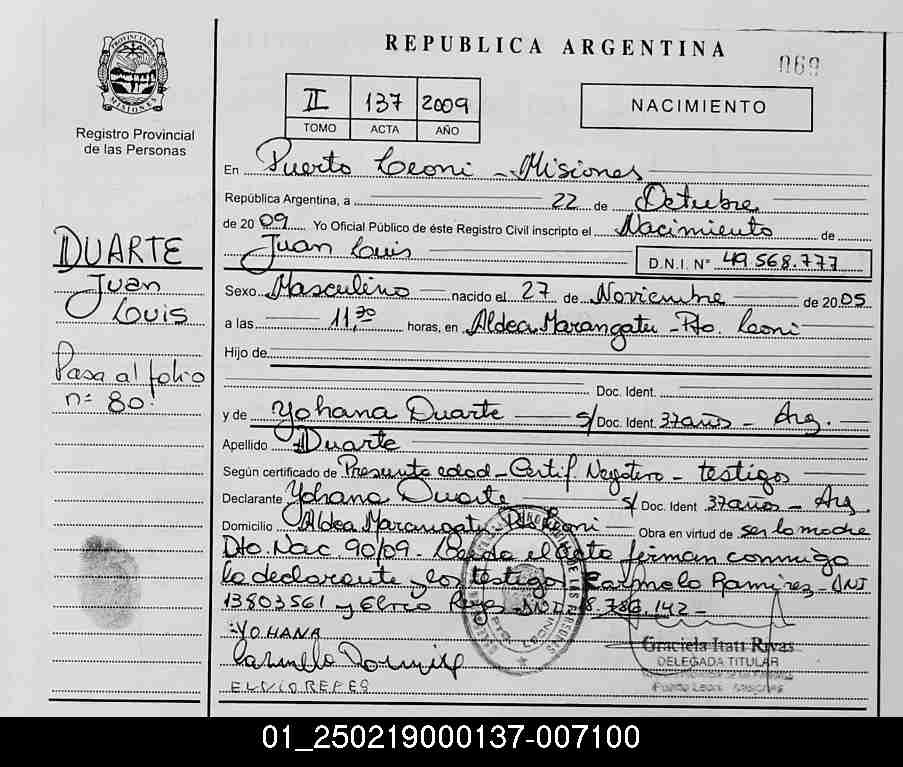 REPUBLICA ARGENTINA
069
PROVINCIA DE MISIONES
Registro Provincial
de las Personas
II 137 2009
TOMO ACTA AÑO
NACIMIENTO
En Puerto Leoni - Misiones
República Argentina, a 22 de Octubre
de 2009 Yo Oficial Público de éste Registro Civil inscripto el Nacimiento de
Juan Luis
D.N.I. N° 49.568.777
Sexo Masculino nacido el 27 de Noviembre de 2005
a las 11,30 horas, en Aldea Marangatu - Pto. Leoni
Hijo de
Doc. Ident.
y de Yohana Duarte s/ Doc. Ident. 37 años - Arg.
Apellido Duarte
Según certificado de Presunta edad - Certif. Negativo - testigos
Declarante Yohana Duarte s/ Doc. Ident 37 años - Arg.
Domicilio Aldea Marangatu Pto Leoni Obra en virtud de ser la madre
Dto. Nac. 90/09 - Leida el acta firman conmigo
la declarante y los testigos Carmelo Ramirez - DNI
13803561 y Elvio Reyes - DNI
YOHANA
ELVIO REPES
Graciela Itatí Rivas
DELEGADA TITULAR
Puerto Leoni Misiones
DUARTE
Juan
Luis
Pasa al folio
n° 80
01_250219000137-007100